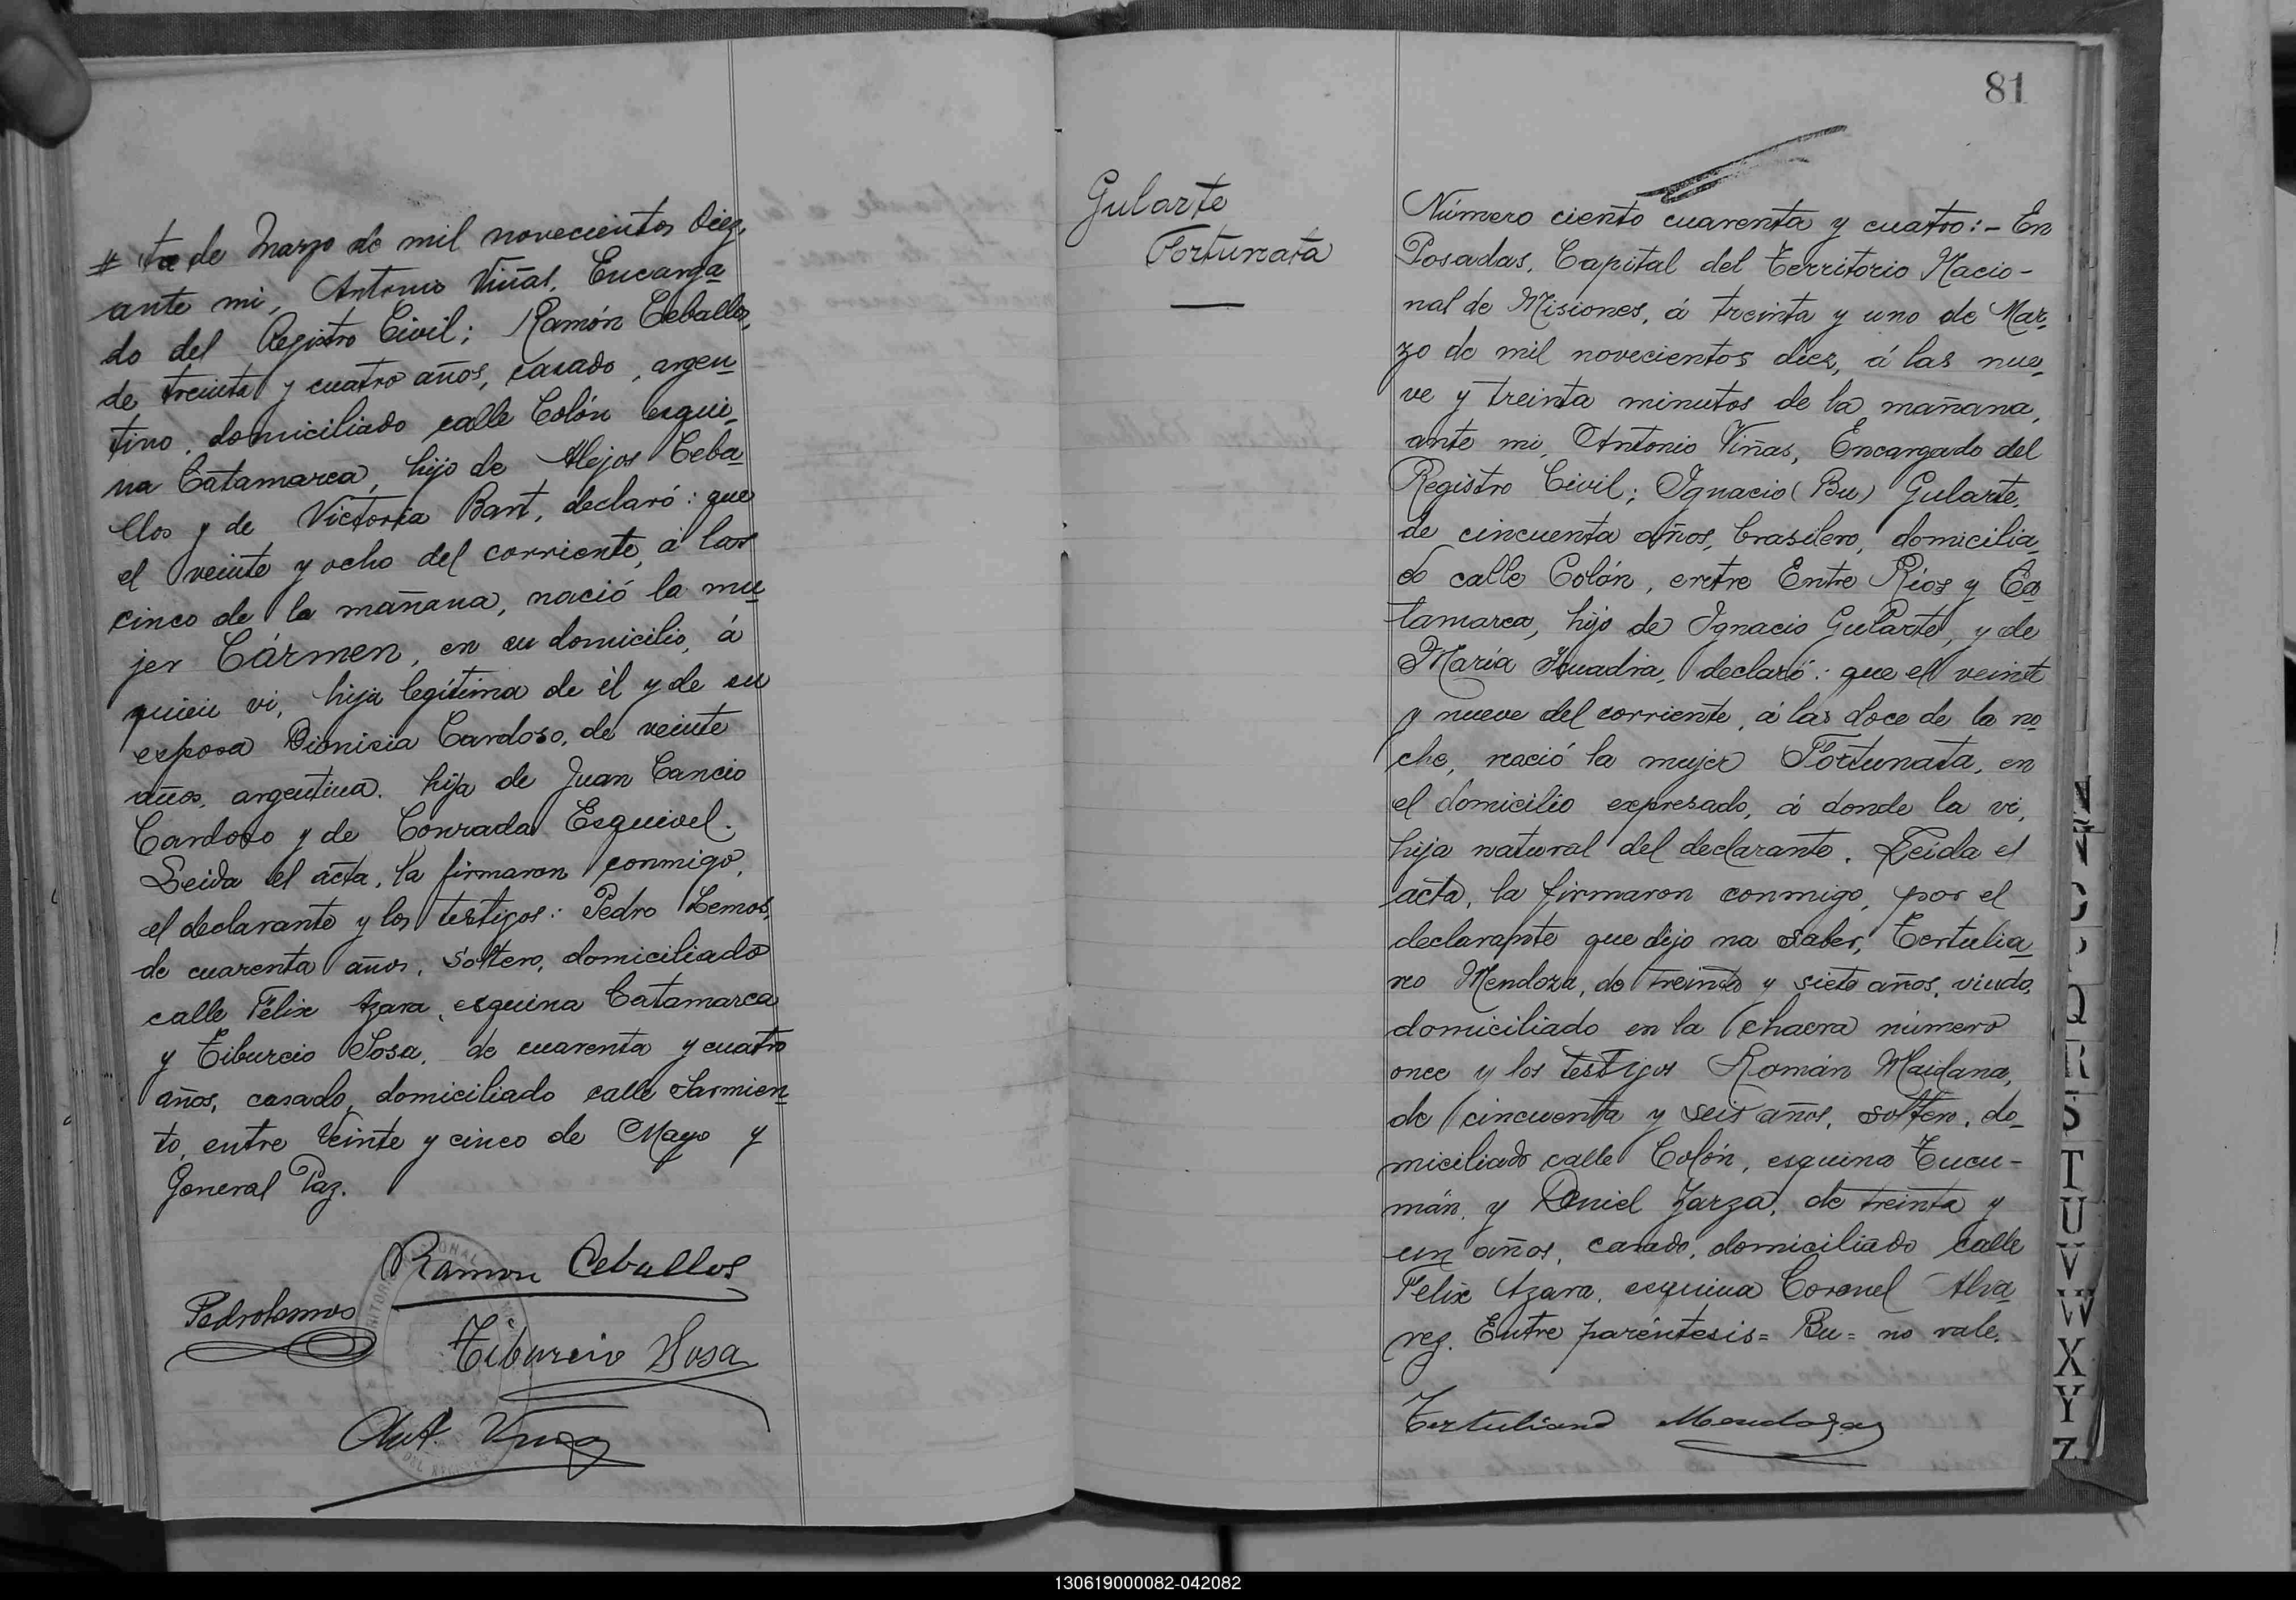 # ta de Marzo de mil novecientos diez,
ante mi, Antonio Viñas, Encarga-
do del Registro Civil; Ramón Ceballos,
de treinta y cuatro años, casado, argen-
tino, domiciliado calle Colón esqui-
na Catamarca, hijo de Alejos Ceba-
llos y de Victoria Bart, declaró: que
el veinte y ocho del corriente, á las
cinco de la mañana, nació la mu-
jer Cármen, en su domicilio, á
quien vi, hija legítima de él y de su
esposa Dionisia Cardoso, de veinte
años, argentina, hija de Juan Cancio
Cardoso y de Conrada Esquivel.
Leida el acta, la firmaron conmigo,
el declarante y los testigos: Pedro Lemos,
de cuarenta años, soltero, domiciliado
calle Félix Azara, esquina Catamarca
y Tiburcio Sosa, de cuarenta y cuatro
años, casado, domiciliado calle Sarmien-
to, entre Veinte y cinco de Mayo y
General Paz.
Ramon Ceballos
Pedro Lemos
Tiburcio Sosa
Ant. Viñas
81
Gularte
Fortunata
Número ciento cuarenta y cuatro:- En
Posadas, Capital del Territorio Nacio-
nal de Misiones, á treinta y uno de Mar-
zo de mil novecientos diez, á las nue-
ve y treinta minutos de la mañana,
ante mi, Antonio Viñas, Encargado del
Registro Civil; Ignacio (Bu) Gularte,
de cincuenta años, brasilero, domicilia-
do calle Colón, entre Entre Ríos y Ca-
tamarca, hijo de Ignacio Gularte, y de
María declaró: que el veinte
y nueve del corriente, á las doce de la no-
che, nació la mujer Fortunata, en
el domicilio expresado, á donde la vi,
hija natural del declarante. Leída el
acta, la firmaron conmigo, por el
declarante que dijo no saber, Tertulia-
no Mendoza, de treinta y siete años, viudo,
domiciliado en la chacra número
once y los testigos Román Maidana,
de cincuenta y seis años, soltero, do-
miciliado calle Colón, esquina Tucu-
mán, y Daniel Zarza, de treinta y
un años, casado, domiciliado calle
Felix Azara, esquina Coronel Alva-
rez. Entre paréntesis= Bu= no vale.
Tertuliano Mendoza
N
O
P
Q
R
S
T
U
V
W
X
Y
Z
130619000082-042082